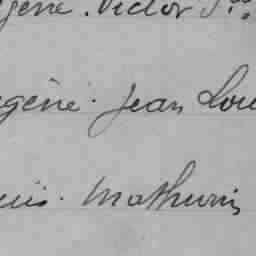 gène. Victor J
gène. Jean Lou
uis. Mathurin